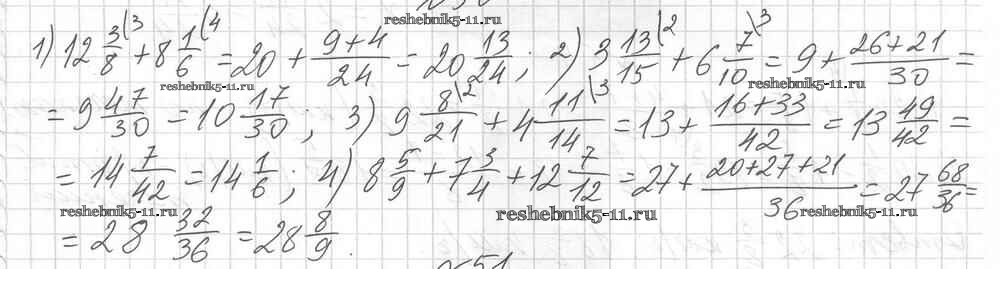 reshebnik5-11.ru
1) 12 3/8 \3 + 8 1/6 \4 = 20 + (9+4)/24 = 20 13/24; 2) 3 13/15 \2 + 6 7/10 \3 = 9 + (26+21)/30 =
reshebnik5-11.ru reshebnik5-11.ru
= 9 47/30 = 10 17/30; 3) 9 8/21 \2 + 4 11/14 \3 = 13 + (16+33)/42 = 13 49/42 =
= 14 7/42 = 14 1/6; 4) 8 5/9 + 7 3/4 + 12 7/12 = 27 + (20+27+21)/36 = 27 68/36 =
reshebnik5-11.ru reshebnik5-11.ru reshebnik5-11.ru
= 28 32/36 = 28 8/9.